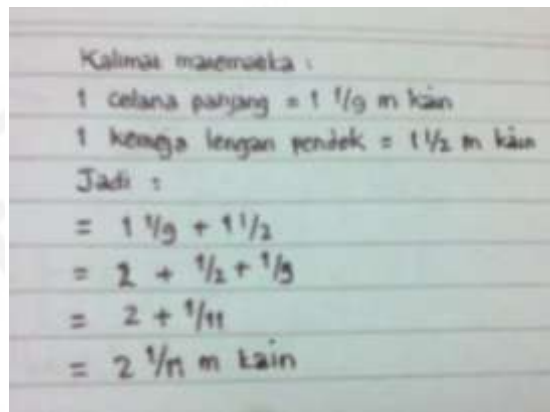 Kalimat matematika :
1 celana panjang = 1 1/9 m kain
1 kemeja lengan pendek = 1 1/2 m kain
Jadi :
= 1 1/9 + 1 1/2
= 2 + 1/2 + 1/9
= 2 + 1/11
= 2 1/11 m kain